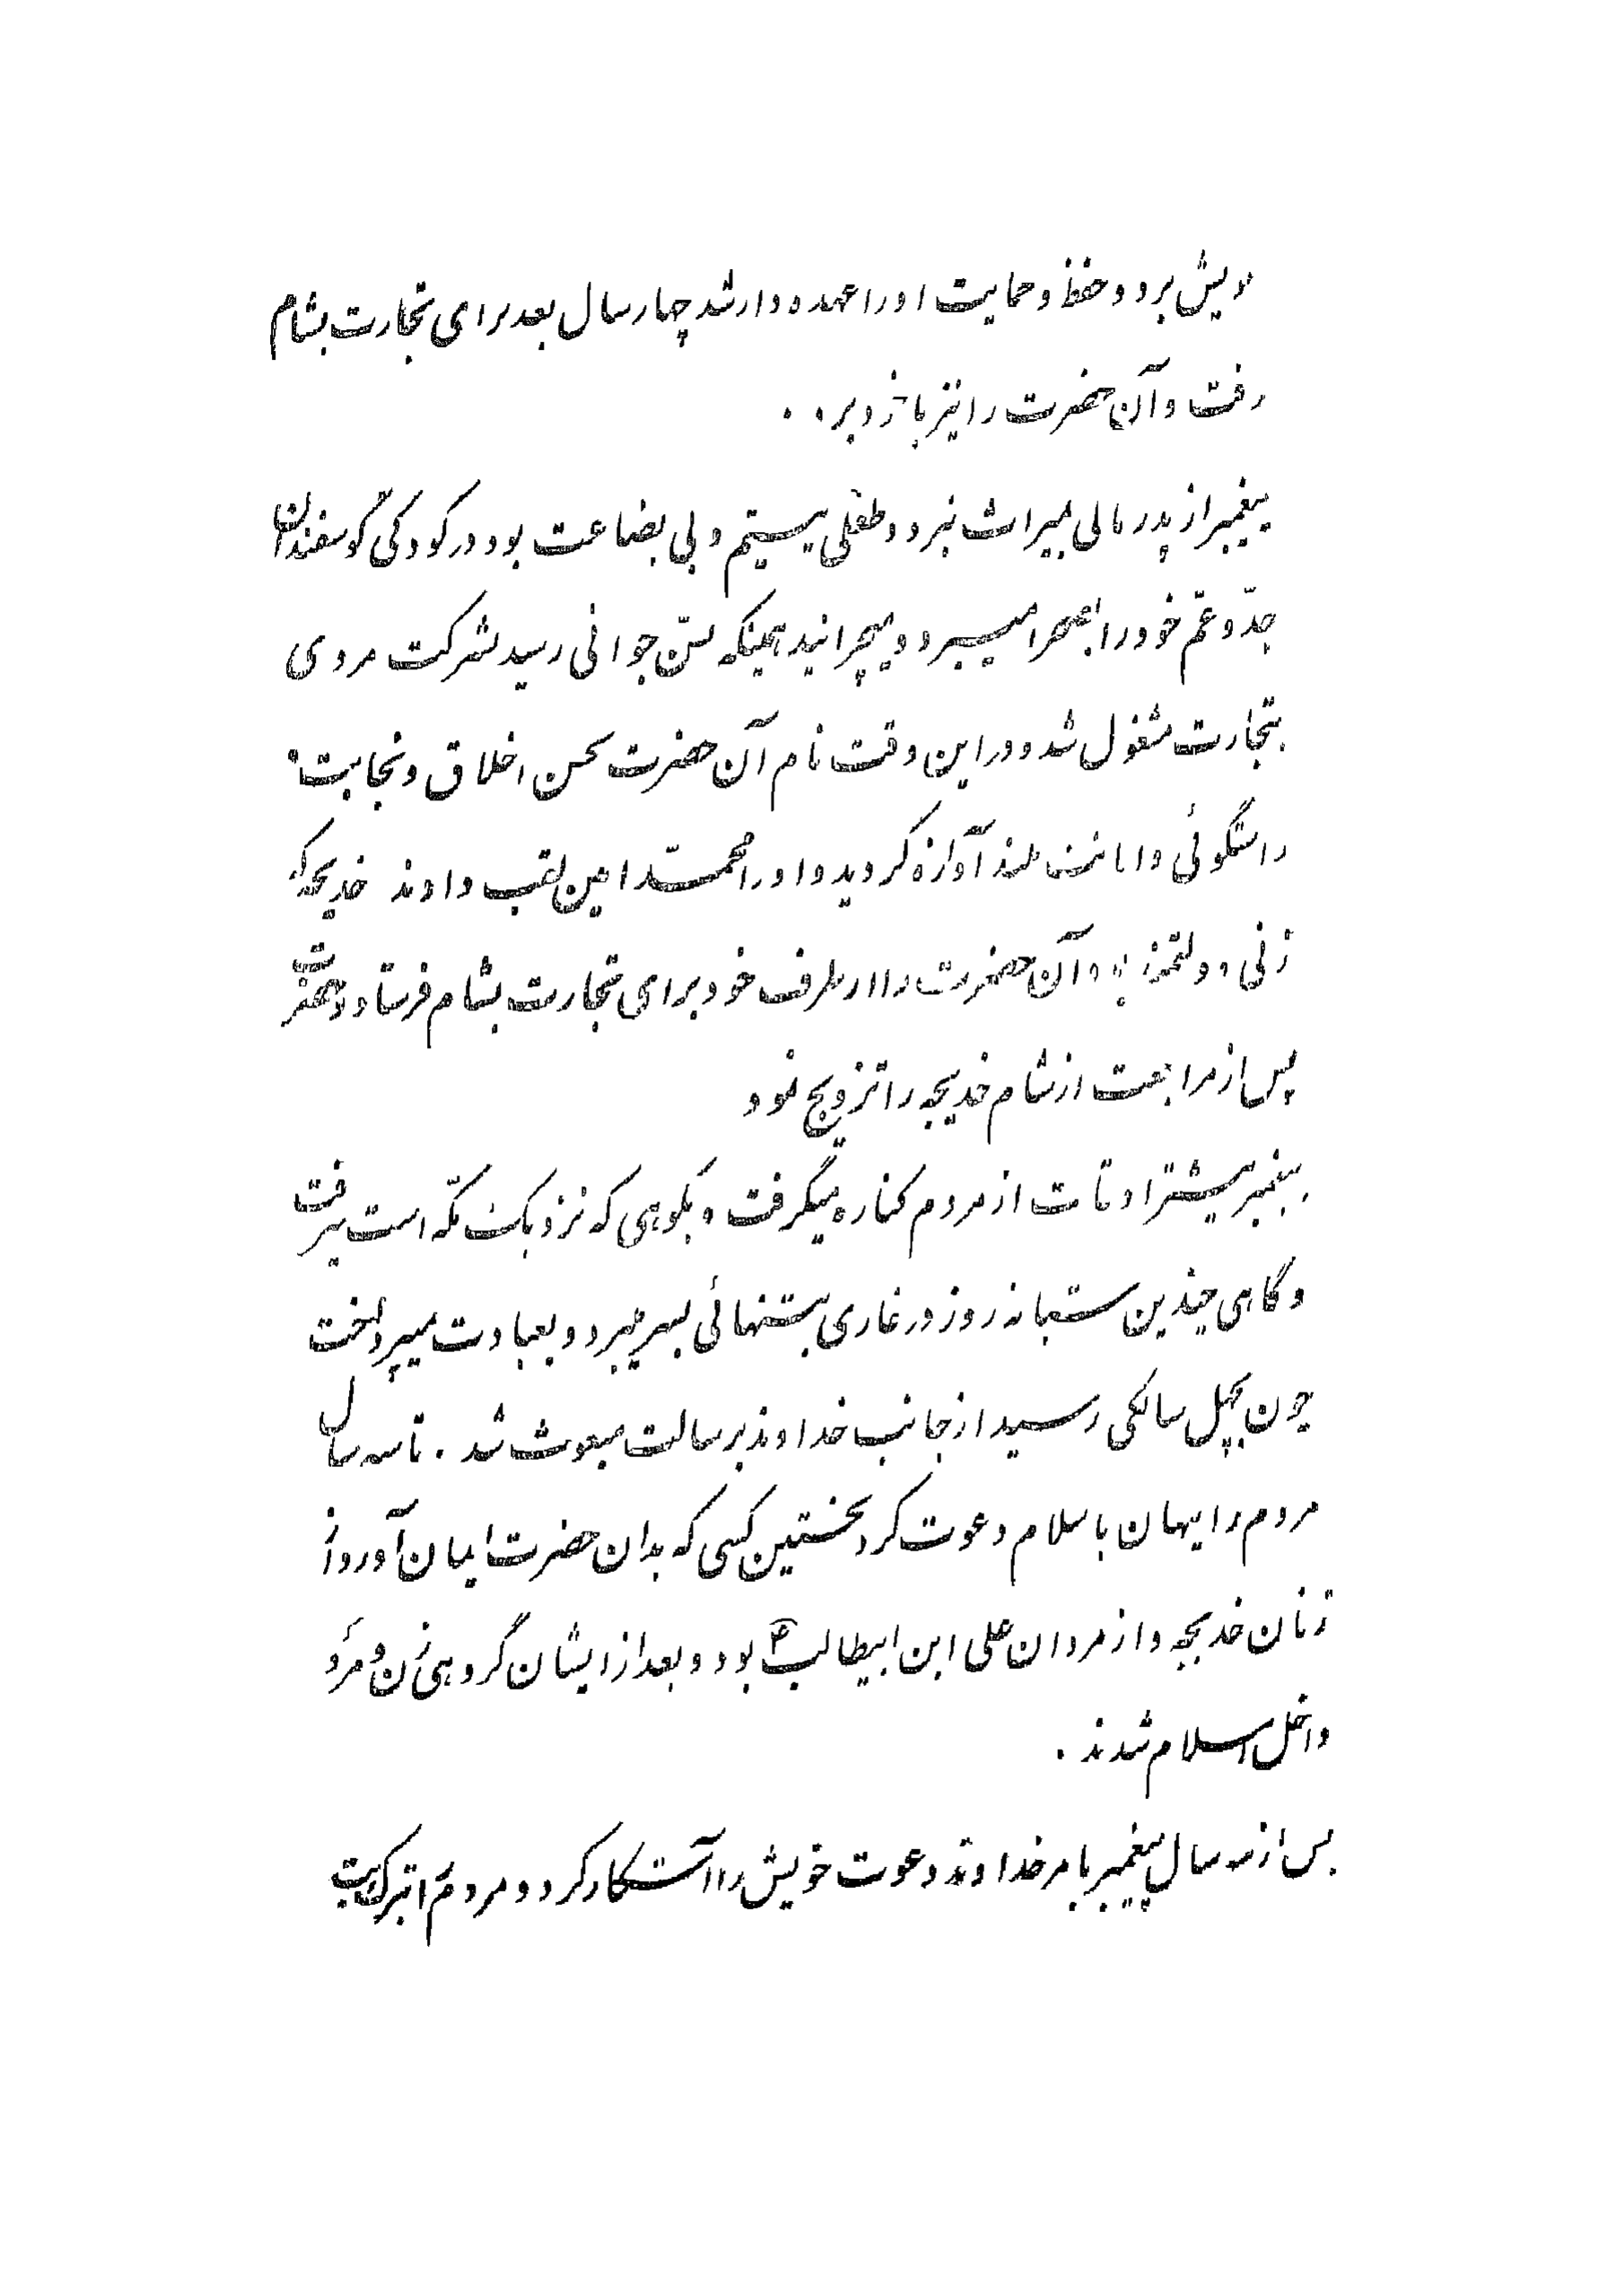 خویش برد و حفظ و حمایت او را عهده دار شد چهار سال بعد برای تجارت بشام
رفت و آن حضرت را نیز با خود برد .
پیغمبر از پدر مالی بمیراث نبرد و طفلی یتیم و بی بضاعت بود در کودکی گوسفندان
جدّ و عمّ خود را بصحرا میبرد و میچرانید همینکه بسنّ جوانی رسید بشرکت مردی
بتجارت مشغول شد و در این وقت نام آن حضرت بحسن اخلاق و نجابت و
راستگوئی و امانت بلند آوازه گردید و او را محمّد امین لقب دادند خدیجه که
زنی دولتمند بود آن حضرت را از طرف خود برای تجارت بشام فرستاد و حضرت
پس از مراجعت از شام خدیجه را تزویج نمود
پیغمبر بیشتر اوقات از مردم کناره میگرفت و بکوهی که نزدیک مکّه است میرفت
و گاهی چندین شبانه روز در غاری بتنهائی بسر میبرد و بعبادت میپرداخت
چون بچهل سالگی رسید از جانب خداوند برسالت مبعوث شد . تا سه سال
مردم را پنهان باسلام دعوت کرد نخستین کسی که بدان حضرت ایمان آورد از
زنان خدیجه و از مردان علی ابن ابیطالب ع بود و بعد از ایشان گروهی زن و مرد
داخل اسلام شدند .
پس از سه سال پیغمبر بامر خداوند دعوت خویش را آشکار کرد و مردم را بترک بت